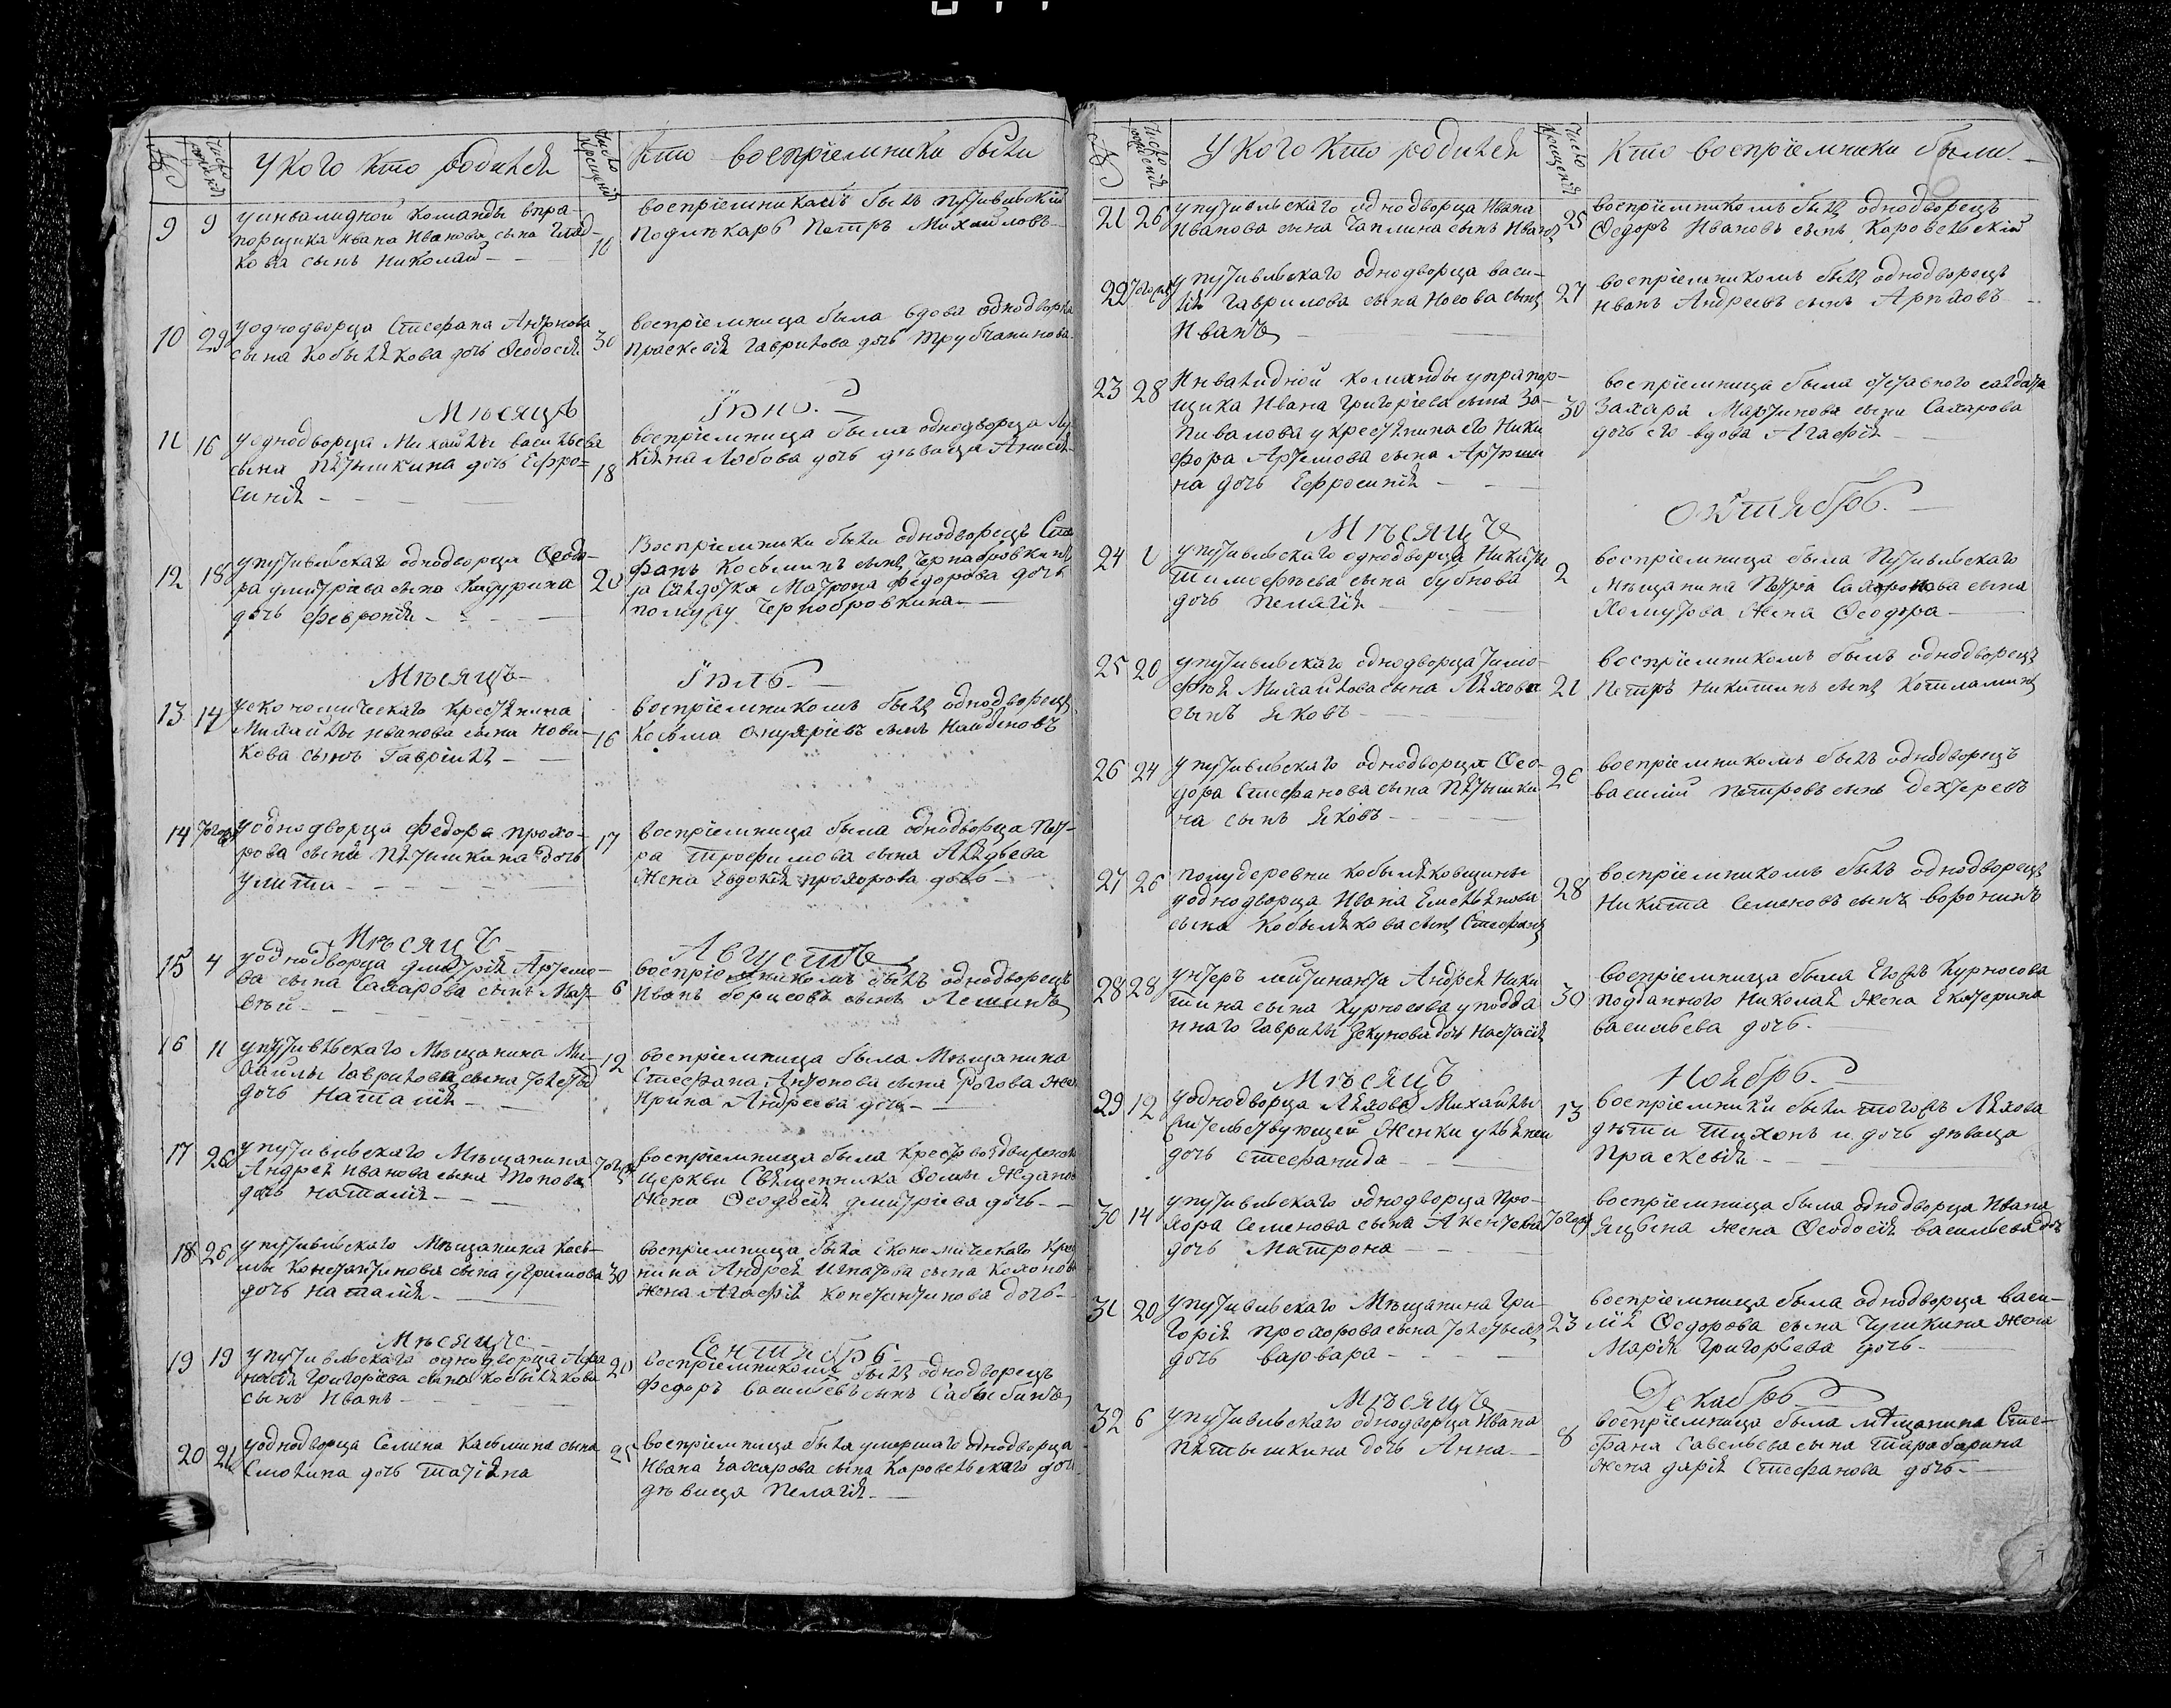 №
число рожденія
У кого кто родился
число крещенія
кто восприемники были
9 9 у инвалидной команды у пра-
порщика Ивана Иванова сына
кова сынъ Николай
10 восприемникомъ былъ путивльскій
подлѣкарь Петръ Михайловъ
10 29 у однодворца Стефана
сына Кобылякова дочь Феодосія
30 восприемница была вдова однодворка
Праскевія Гаврилова дочь Трубчанинова
Мѣсяцъ Іюнь.
11 16 у однодворца Михайлы Васильева
сына Пятышкина дочь Ефро-
синія
18 восприемница была однодворца Лу-
кіяна Лобова дочь дѣвица Анисія
12 18 у путивльскаго однодворца Феодо-
ра Дмитріева сына
дочь Феvронія
20 Восприемники были однодворецъ Сте-
фанъ Косьминъ сынъ Чернобровкинъ
да солдотка Матрона Федорова дочь
по мужу Чернобровкина
Мѣсяцъ Іюль.
13 14 у економическаго крестьянина
Михайлы Иванова сына Нови-
кова сынъ Гавріилъ
16 восприемникомъ былъ однодворецъ
Косьма сынъ Найденовъ
14 тогожъ у однодворца Федора Прохо-
рова сына Пятышкина дочь
Улита
17 восприемница была однодворца Пет-
ра Трофимова сына
жена Евдокія Прохорова дочь
Мѣсяцъ Августъ
15 4 у однодворца Дмитрія Артемо-
ва сына Сахарова сынъ Мат-
вѣй
6 восприемникомъ былъ однодворецъ
Иванъ Борисовъ сынъ Лешинъ
16 11 у путивльскаго мѣщанина Ми-
хайлы Гаврилова сына
дочь Наталія
12 восприемница была мѣщанина
Стефана Антонова сына Рогова жена
Ирина Андреева дочь
17 26 у путивльскаго мѣщанина
Андрея Иванова сына Попова
дочь Наталія
тогожъ восприемница была Крестовоздвиженской
церкви священника Фомы
жена Феодосія Дмитріева дочь
18 26 у путивльскаго мѣщанина Кось-
мы Константинова сына Угримова
дочь Наталія
30 восприемница была економическаго крес
нина Андрея Игнатова сына
жена Агафія Константинова дочь
Мѣсяцъ Сентябрь
19 19 у путивльскаго однодворца Афа
насія Григоріева сына Кобылякова
сынъ Иванъ
20 восприемникомъ былъ однодворецъ
Федоръ Васильевъ сынъ
20 21 у однодворца Семена Касьмина сына
Смолина дочь Татіяна
25 восприемница была умершаго однодворца
Ивана Захарова сына Коровельскаго дочь
дѣвица Пелагія
№
число рожденія
У кого кто родился
число крещенія
Кто восприемники были.
21 26 у путивльскаго однодворца Ивана
Иванова сына Чаплина сынъ Иванъ
25 восприемникомъ былъ однодворецъ
Федоръ Ивановъ сынъ Коровельскій
22 тогожъ у путивльскаго однодворца Васи-
лія Гаврилова сына Носова сынъ
Иванъ
27 восприемникомъ былъ однодворецъ
Иванъ Андреевъ сынъ
23 28 Инвалидной команды у прапор-
щика Ивана Григоріева сына За-
пивалова у крестянина его Ники
фора Артемова сына
на дочь Ефросинія
30 восприемница была отставного салдата
Захара Мартинова сына Сахарова
дочь его вдова Агафія
Мѣсяцъ Октябрь.
24 1 у путивльскаго однодворца Никиты
Тимофеева сына Бубнова
дочь Пелагія
2 восприемница была путивльскаго
мѣщанина Петра сына
Хомутова жена Феодора
25 20 у путивльскаго однодворца Тимо-
фѣя Михайлова сына Ляхова
сынъ Яковъ
21 восприемникомъ былъ однодворецъ
Петръ Никитинъ сынъ
26 24 у путивльскаго однодворца Фео-
дора Стефанова сына Пятышки
на сынъ Яковъ
26 восприемникомъ былъ однодворецъ
Василій Петровъ сынъ Дехтеревъ
27 26 полудеревни Кобыляковщины
у однодворца Ивана Емельянова
сына Кобылякова сынъ Стефанъ
28 восприемникомъ былъ однодворецъ
Никита Семеновъ сынъ Воронинъ
28 28 унтеръ лейтинанта Андрея Ники
тина сына Курносова у подда
ннаго Гаврилы дочь Настасія
30 восприемница была Егожъ Курносова
подданного Николая жена Екатерина
Васильева дочь.
Мѣсяцъ Ноябрь.
29 12 у однодворца Ляхова Михайлы
жительствующей женки
дочь Стефанида
13 восприемники были тогожъ Ляхова
дѣти Тихонъ и дочь дѣвица
Праскевія
30 14 у путивльскаго однодворца Про-
хора Семенова сына
дочь Матрона
тогожъ восприемница была однодворца Ивана
жена Феодосія Васильева дочь
31 20 у путивльскаго мѣщанина Гри-
горія Прохорова сына
дочь Варвара
23 восприемница была однодворца Васи-
лія Федорова сына Чушкина жена
Марія Григорьева дочь
Мѣсяцъ Декабрь
32 6 у путивльскаго однодворца Ивана
Пятышкина дочь Анна
8 восприемница была мѣщанина Сте-
фана Савельева сына Тарабарина
жена Дарія Стефанова дочь